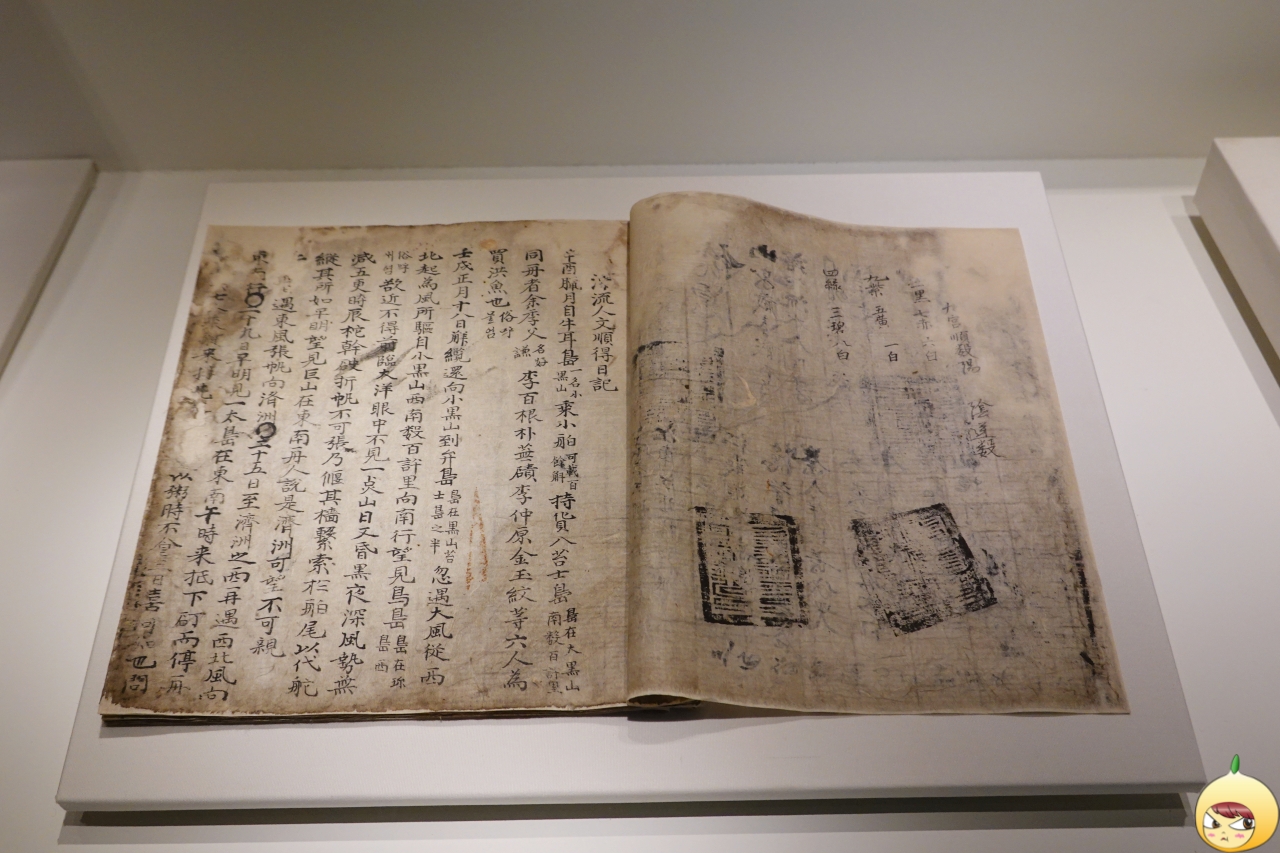 陰遁數
九宮順數陽
二黑 七赤 六白
九紫 五黃 一白
四綠 三碧 八白
流人文順得日記
辛酉臘月自牛耳島一名小黑山乘小舶可載百餘斛持化貿八苫士島島在大黑山南數百許里
同舟者余季父名好謙李百根朴無磧李仲原金玉紋等六人為
買洪魚也俗
壬戌正月十八日解纜還向小黑山到弁島島在黑山苫士島之半忽遇大風從西
北起為風所驅自小黑山西南數百許里向南行望見鳥島島在珍島西
俗呼欲近不得前臨大洋眼中不見一点山日又昏黑夜深風勢無
減五更時辰柁幹破折帆不可張乃偃其檣繫索於舶尾以代舵
縱其所如早明望見巨山在東南舟人說是濟洲可望不可親
遇東風張帆向濟洲〇二十五日至濟洲之西再遇西北風向
行〇二十九日早明見一大島在東南午時来抵下碇而停舟
以粥時不 也問